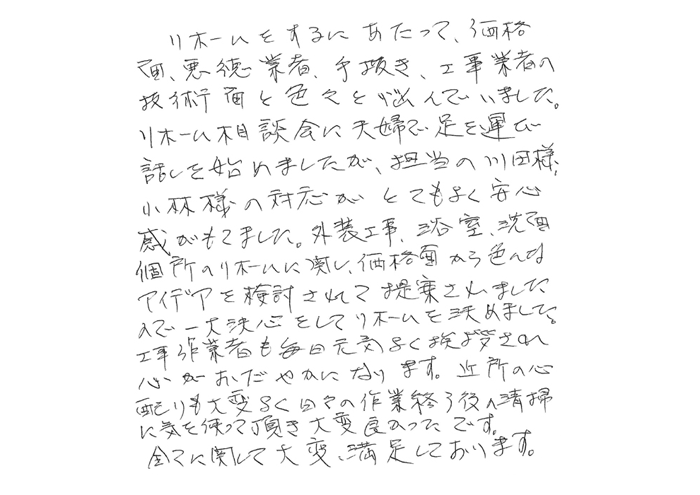 リホームをするにあたって、価格
面、悪徳業者、手抜き、工事業者の
技術面と色々と悩んでいました。
リホーム相談会に夫婦で足を運び
話しを始めましたが、担当の川田様、
小林様の対応がとてもよく安心
感がもてました。外装工事、浴室、洗面
個所のリホームに関し、価格面から色んな
アイデアを検討されて提案されました
ので一大決心をしてリホームを決めました。
工事作業者も毎日元気よく挨拶され
心がおだやかになります。近所の心
配りも大変よく日々の作業終了後の清掃
に気を使って頂き大変良かったです。
全てに関して大変、満足しております。